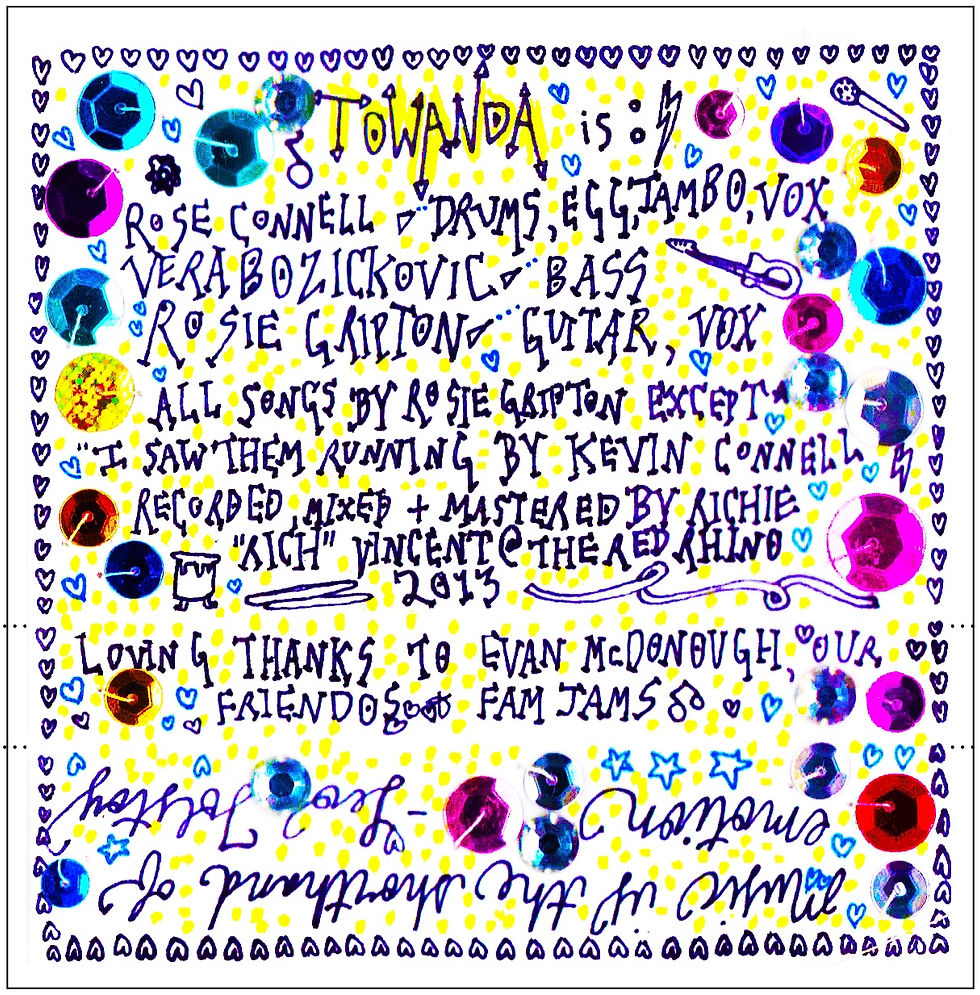 TOWANDA is:
ROSE CONNELL DRUMS, EGG, TAMBO, VOX
VERA BOZICKOVIC BASS
ROSIE GRIPTON GUITAR, VOX
ALL SONGS BY ROSIE GRIPTON EXCEPT
"I SAW THEM RUNNING BY KEVIN CONNELL
RECORDED, MIXED + MASTERED BY RICHIE
"RICH" VINCENT @ THE RED RHINO
2013
LOVING THANKS TO EVAN McDONOUGH, OUR
FRIENDOS FAM JAMS
Music is the shorthand of
emotion - Leo Tolstoy